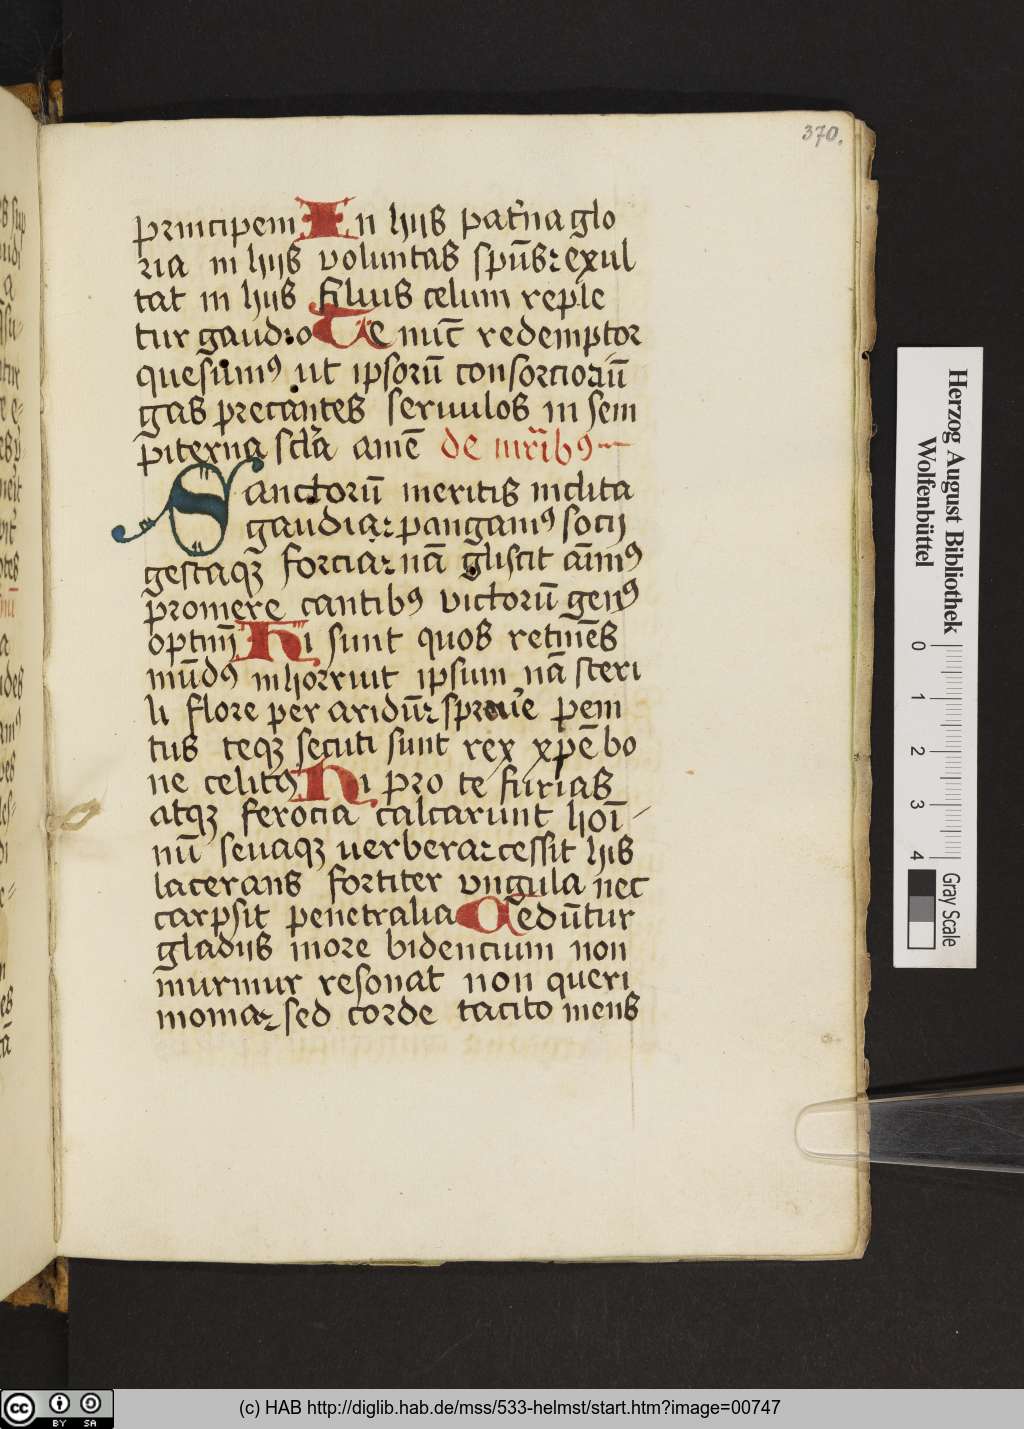 370.
principem In hijs pat̄na glo
ria in hijs voluntas spūs ⁊ exul
tat in hijs filius celum reple
tur gaudio Te nūc redemptor
quesumꝰ ut ipsorū consorcio iū
gas precantes seruulos in sem
piterna scl̄a amē de mr̄ibꝰ
Sanctorū meritis inclita
gaudia ⁊ pangamꝰ socij
gestaqꝫ forcia ⁊ nā gliscit aīmꝰ
promere cantibꝰ victorū genꝰ
optimū Hi sunt quos retinēs
mūdꝰ inhorruit ipsum nā steri
li flore per aridū ⁊ spreuē pem
tus teqꝫ secuti sunt rex xp̄e bo
ne celitꝰ Hi pro te furias
atqꝫ ferocia calcarunt hoī
nū seuaqꝫ uerbera ⁊ cessit hijs
lacerans fortiter vngula nec
carpsit penetralia Cedūtur
gladijs more bidencium non
murmur resonat non queri
monia ⁊ sed corde tacito mens
Herzog August Bibliothek
Wolfenbüttel
0 1 2 3 4
Gray Scale
(c) HAB http://diglib.hab.de/mss/533-helmst/start.htm?image=00747
cc BY SA